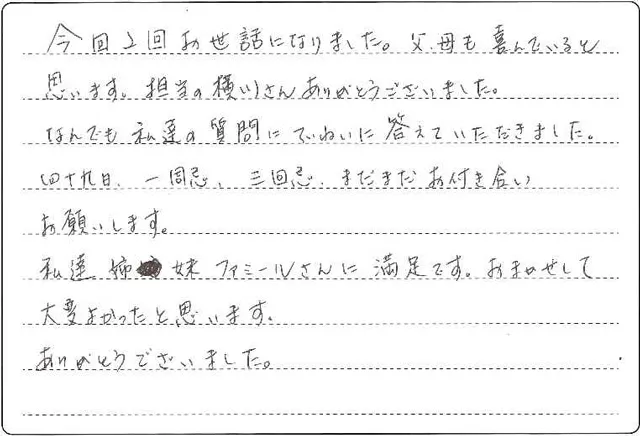 今回2回お世話になりました。父、母も喜んでいると
思います。担当の横川さんありがとうございました。
なんでも私達の質問にていねいに答えていただきました。
四十九日、一周忌、三回忌、まだまだお付き合い
お願いします。
私達 姉妹 ファミールさんに満足です。おまかせして
大変よかったと思います。
ありがとうございました。